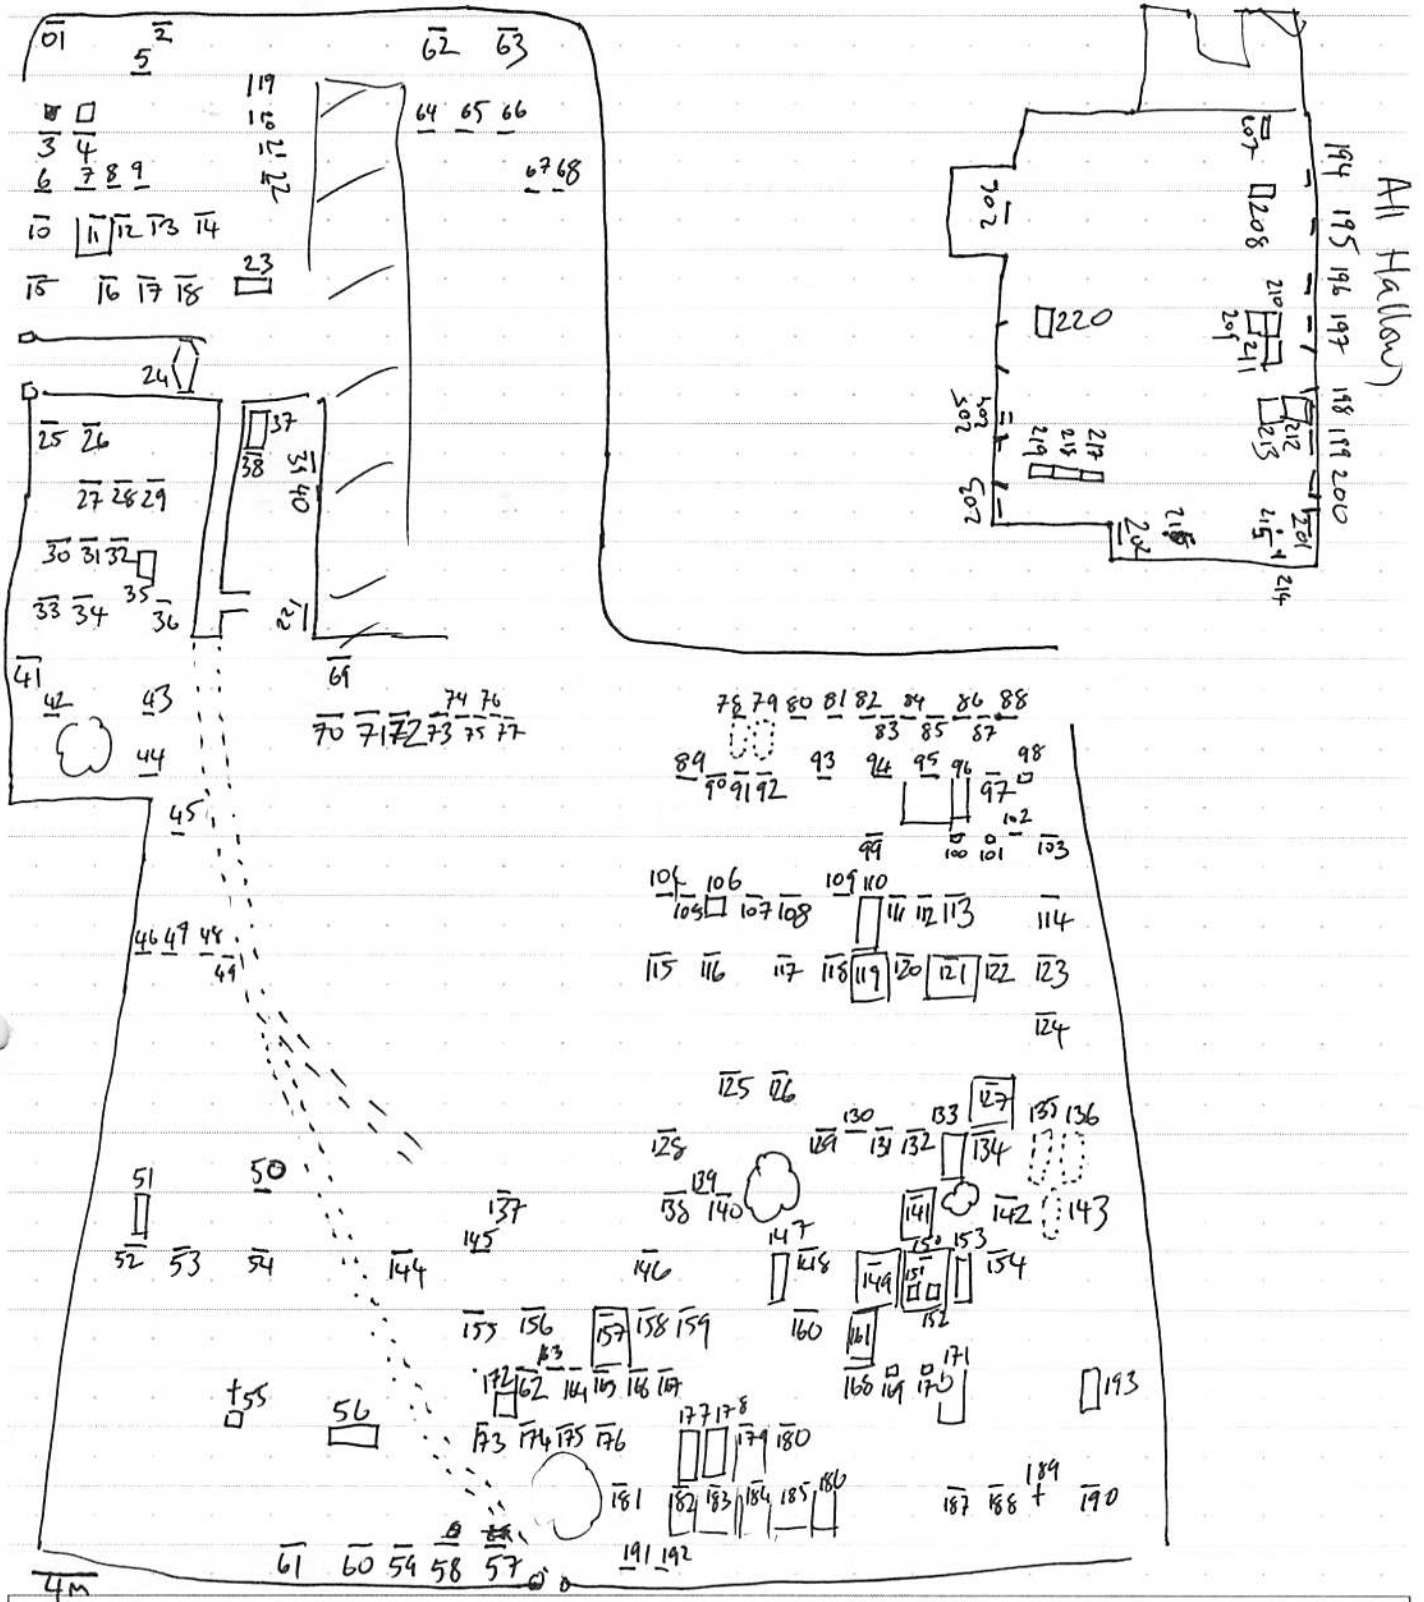 01 2
5
62 63
119
3 4
64 65 66
6 7 8 9
67 68
10 11 12 13 14
15 16 17 18 23
24
25 26
37
38 39 40
27 28 29
30 31 32
33 34 35 36
41
69
42 43
44
70 71 72 73 74 75 76 77
45
46 47 48
49
50
51
52 53 54
55
56
61 60 59 58 57
4M
78 79 80 81 82 83 84 85 86 87 88
89 90 91 92 93 94 95 96 97 98
99 100 101 102 103
105 106 107 108 109 110 111 112 113 114
115 116 117 118 119 120 121 122 123
124
125 126 127
128 129 130 131 132 133 134 135 136
137 138 139 140
141 142 143
144 145 146 147 148 149 150 151 152 153 154
155 156 157 158 159 160 161
162 163 164 165 166 167 168 169 170 171
172
173 174 175 176 177 178 179 180
181 182 183 184 185 186 187 188 189 190
191 192
193
All Hallows
194 195 196 197 198 199 200
201
207
208
209 210 211
212 213
214
215
217
219
220